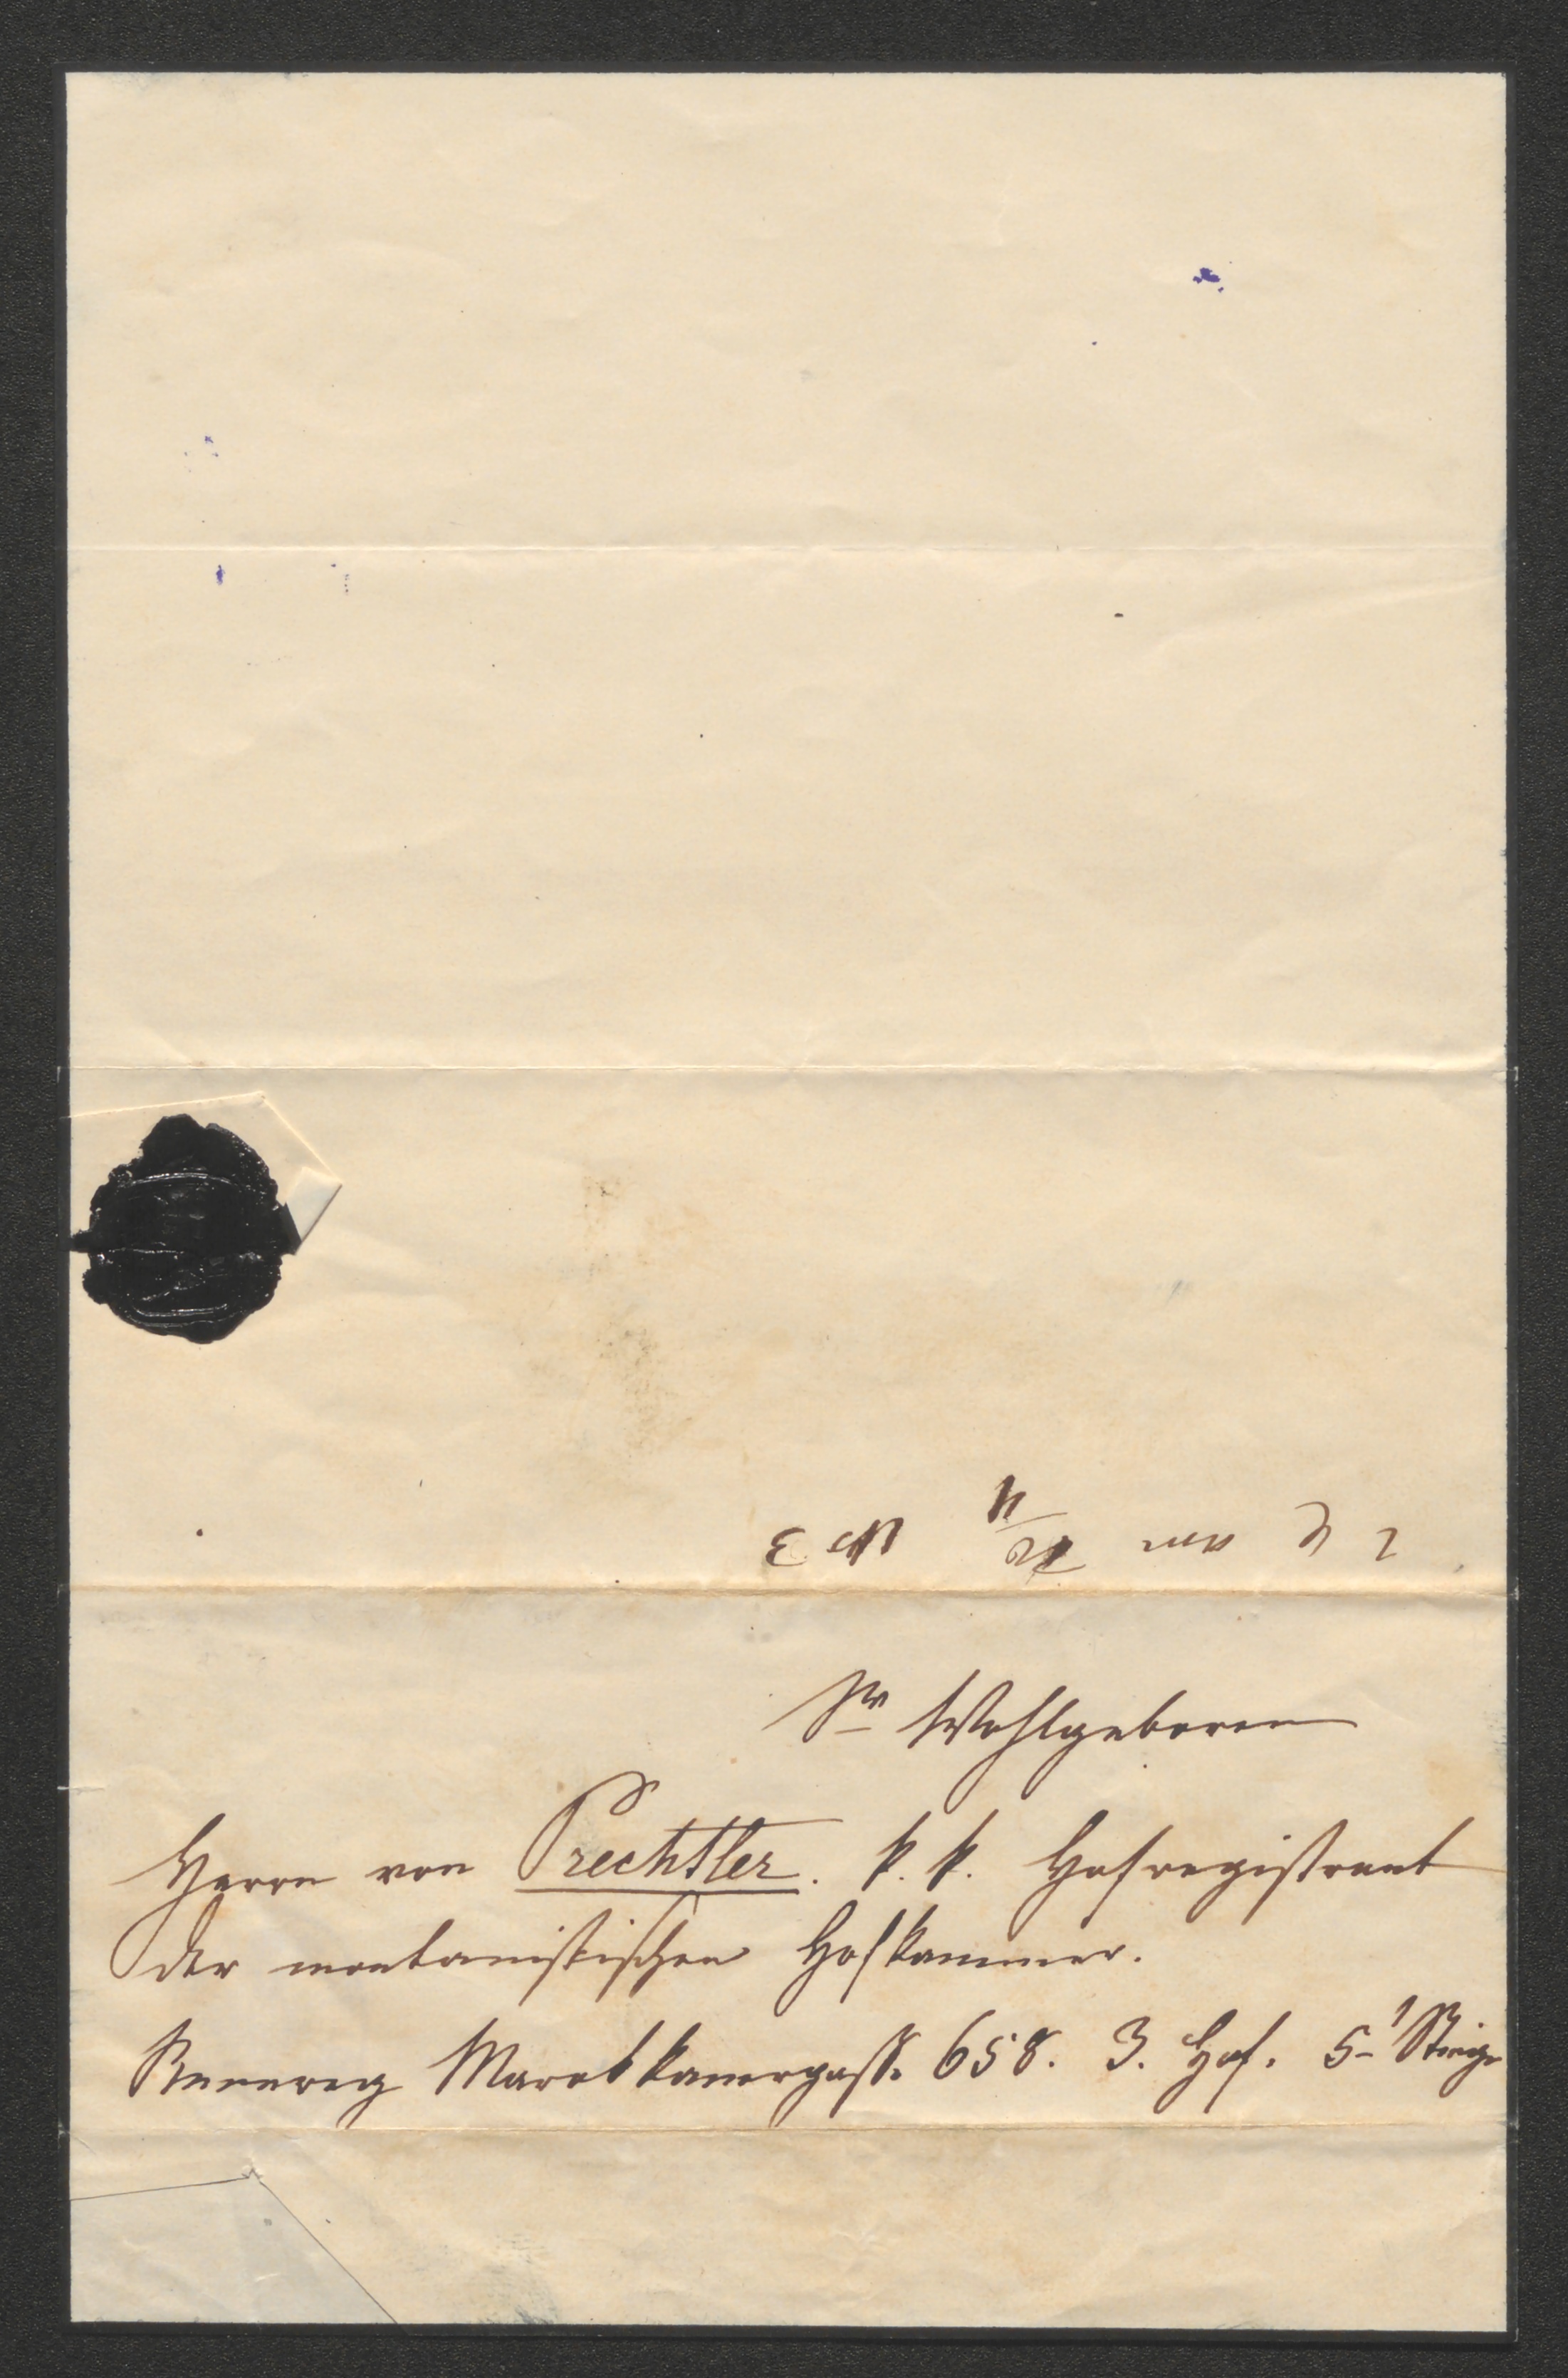 Sr Wohlgeboren
Herrn von Prechtler. k. k. Hofregistrant
der montanistischen Hofkammer.
Rennweg Marokkanergasse 658. 3. Hof. 5. Stiege